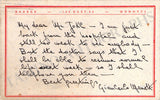 My dear Mr Toll - I am just
back from the hospital and
still too weak to see anybody -
But the doctor says that I
shall be able to resume normal
life next week so I shall
telephone you then -
Best greetings
Giancarlo Menotti